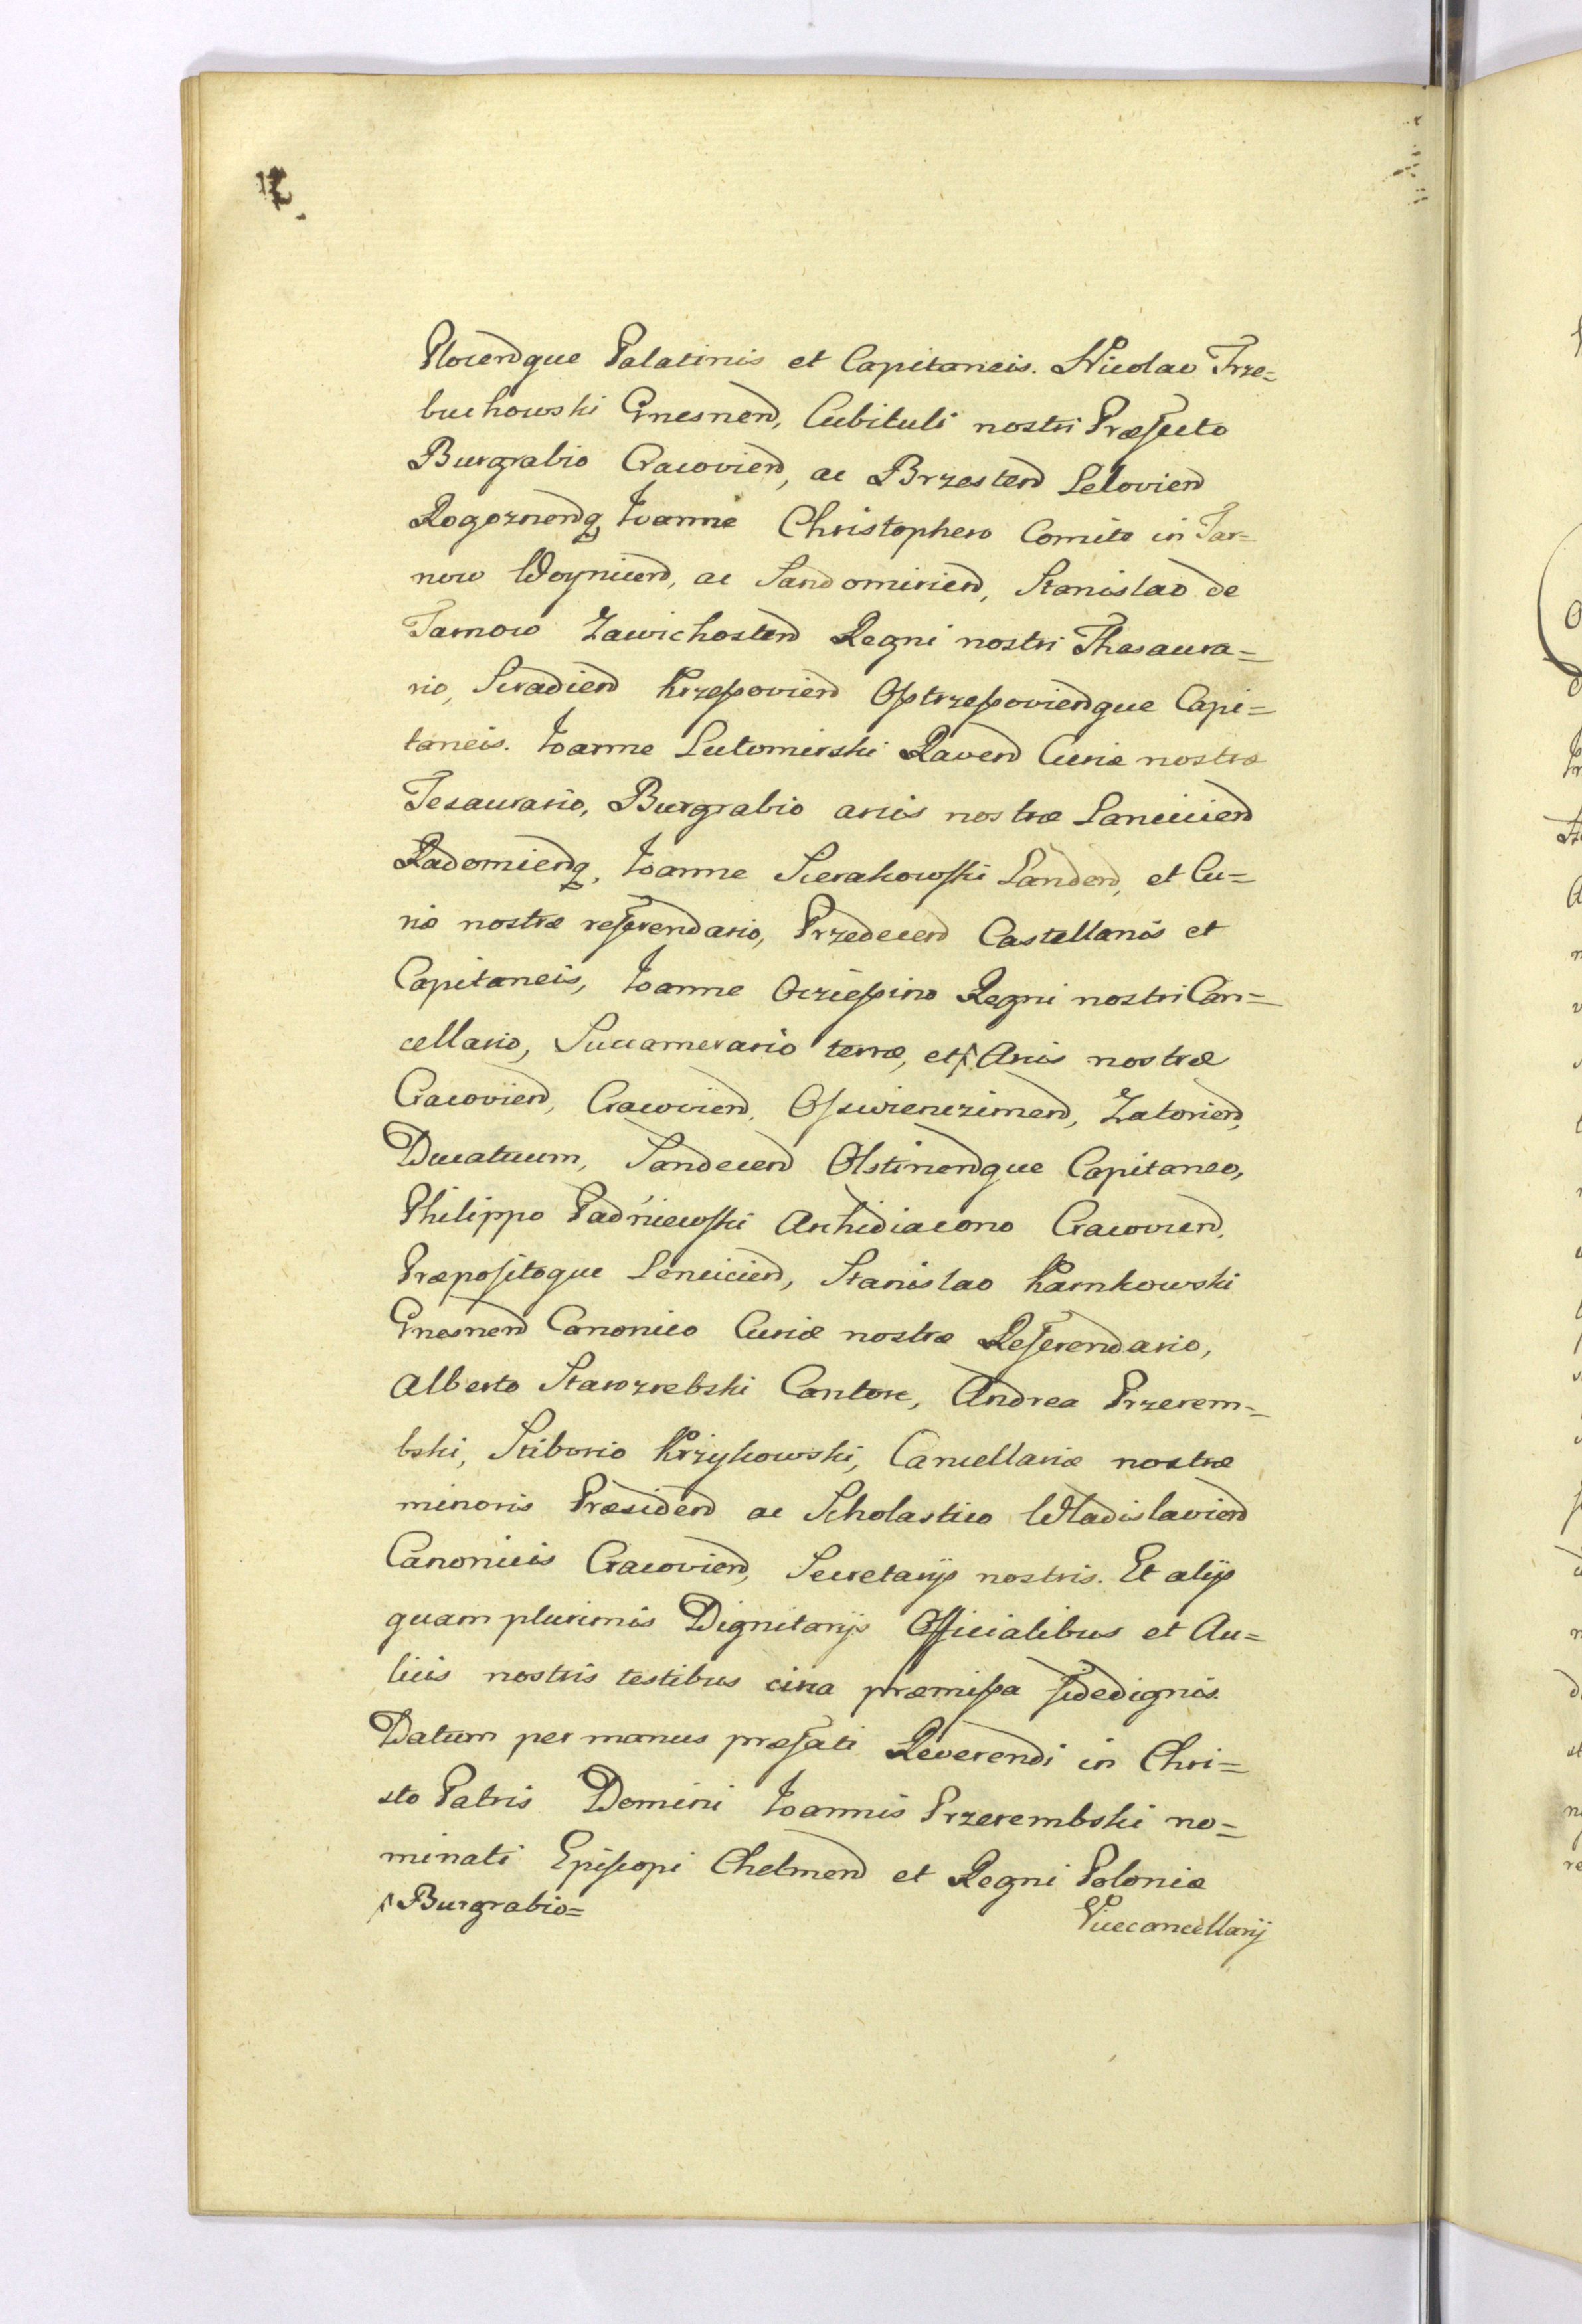 Plocen̄que Palatinis et Capitaneis. Nicolao Trze=
buchowski Gnesnen̄, Cubiculi nostri Præfecto
Burgrabio Cracovien̄, ac Brzesten̄ Lelovien̄
Rogoznen̄q, Ioanne Christophero Comite in Tar=
now Woynicen̄, ac Sandomirien̄, Stanislao de
Tarnow Zawichosten̄ Regni nostri Thesaura=
rio, Siradien̄ Krzeſsovien̄ Oſstrzeſsovien̄que Capi=
taneis. Ioanne Lutomirski Raven̄ Curiæ nostræ
Tesaurario, Burgrabio arcis nostræ Lancicien̄
Radomien̄q, Ioanne Sierakowſki Landen̄, et Cu=
riæ nostræ referendario, Przedecen̄ Castellanis et
Capitaneis, Ioanne Oczieſsino Regni nostri Can=
cellario, Succamerario terræ, et Arcis nostræ
Cracovien̄, Cracovien̄, Oſswiencrimen̄, Zatorien̄,
Ducatuum, Sandecen̄ Olstinen̄que Capitaneo,
Philippo Padńiewſki Archidiacono Cracovien̄,
Præpoſitoque Lencicien̄, Stanislao Karnkowski
Gnesnen̄ Canonico Curiæ nostræ Referendario,
Alberto Starozrebski Cantore, Andrea Przerem=
bski, Stiborio Krzykowski, Cancellariæ nostræ
minoris Præsiden̄ ac Scholastico Wladislavien̄
Canonicis Cracovien̄, Secretarijs nostris. Et alijs
quam plurimis Dignitarijs Officialibus et Au=
licis nostris testibus circa præmiſsa fidedignis.
Datum per manus præfati Reverendi in Chri=
sto Patris Domini Ioannis Przerembski no=
minati Epiſcopi Chelmen̄ et Regni Poloniæ
Burgrabio=
Vicecancellarij